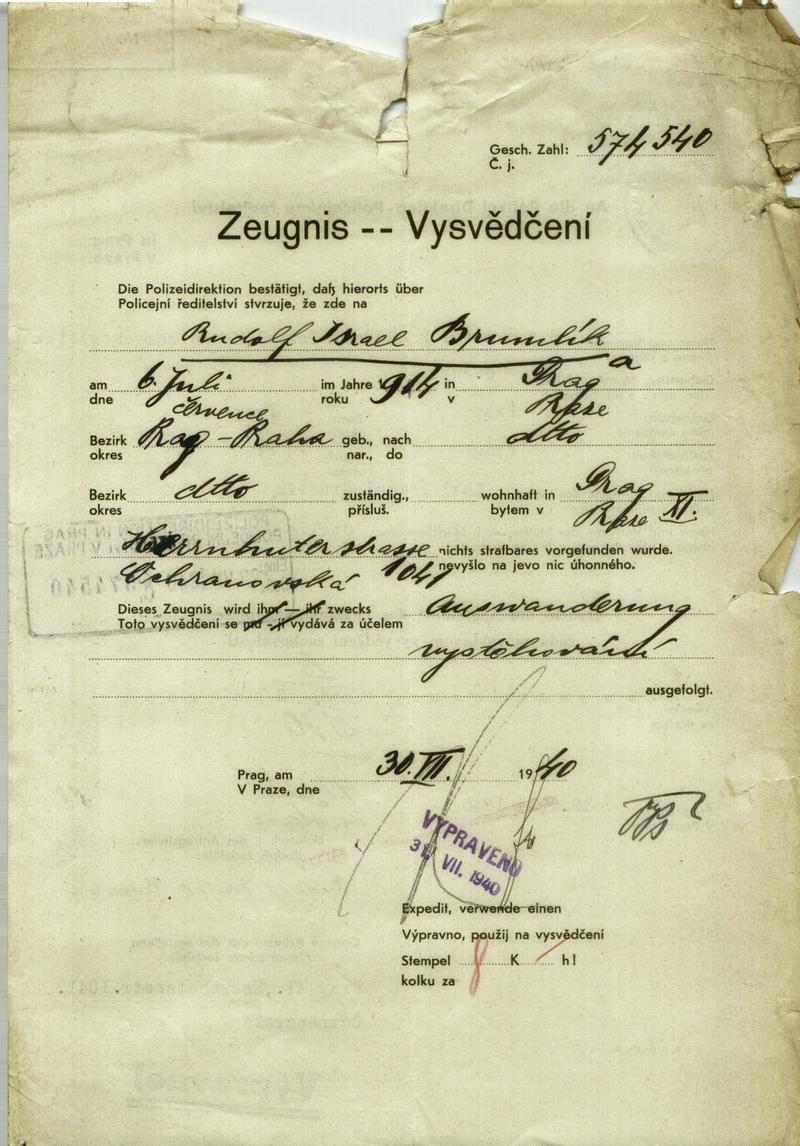 Gesch. Zahl: 574 540
Č. j.
Zeugnis -- Vysvědčení
Die Polizeidirektion bestätigt, daß hierorts über
Policejní ředitelství stvrzuje, že zde na
Rudolf Israel Brumlík
a
am 6. Juli im Jahre 1914 in Prag
dne července roku v Praze
Bezirk Prag - Praha geb., nach dtto
okres nar., do
Bezirk dtto zuständig., wohnhaft in Prag
okres přísluš. bytem v Praze XI.
Herrnhuterstrasse nichts strafbares vorgefunden wurde.
Ochranovská 1041 nevyšlo na jevo nic úhonného.
Dieses Zeugnis wird ihm — ihr zwecks Auswanderung
Toto vysvědčení se mu - jí vydává za účelem
vystěhování
ausgefolgt.
Prag, am 30. VII. 1940
V Praze, dne
VYPRAVENO
31. VII. 1940
Expedit, verwende einen
Výpravno, použij na vysvědčení
Stempel 8 K — h!
kolku za